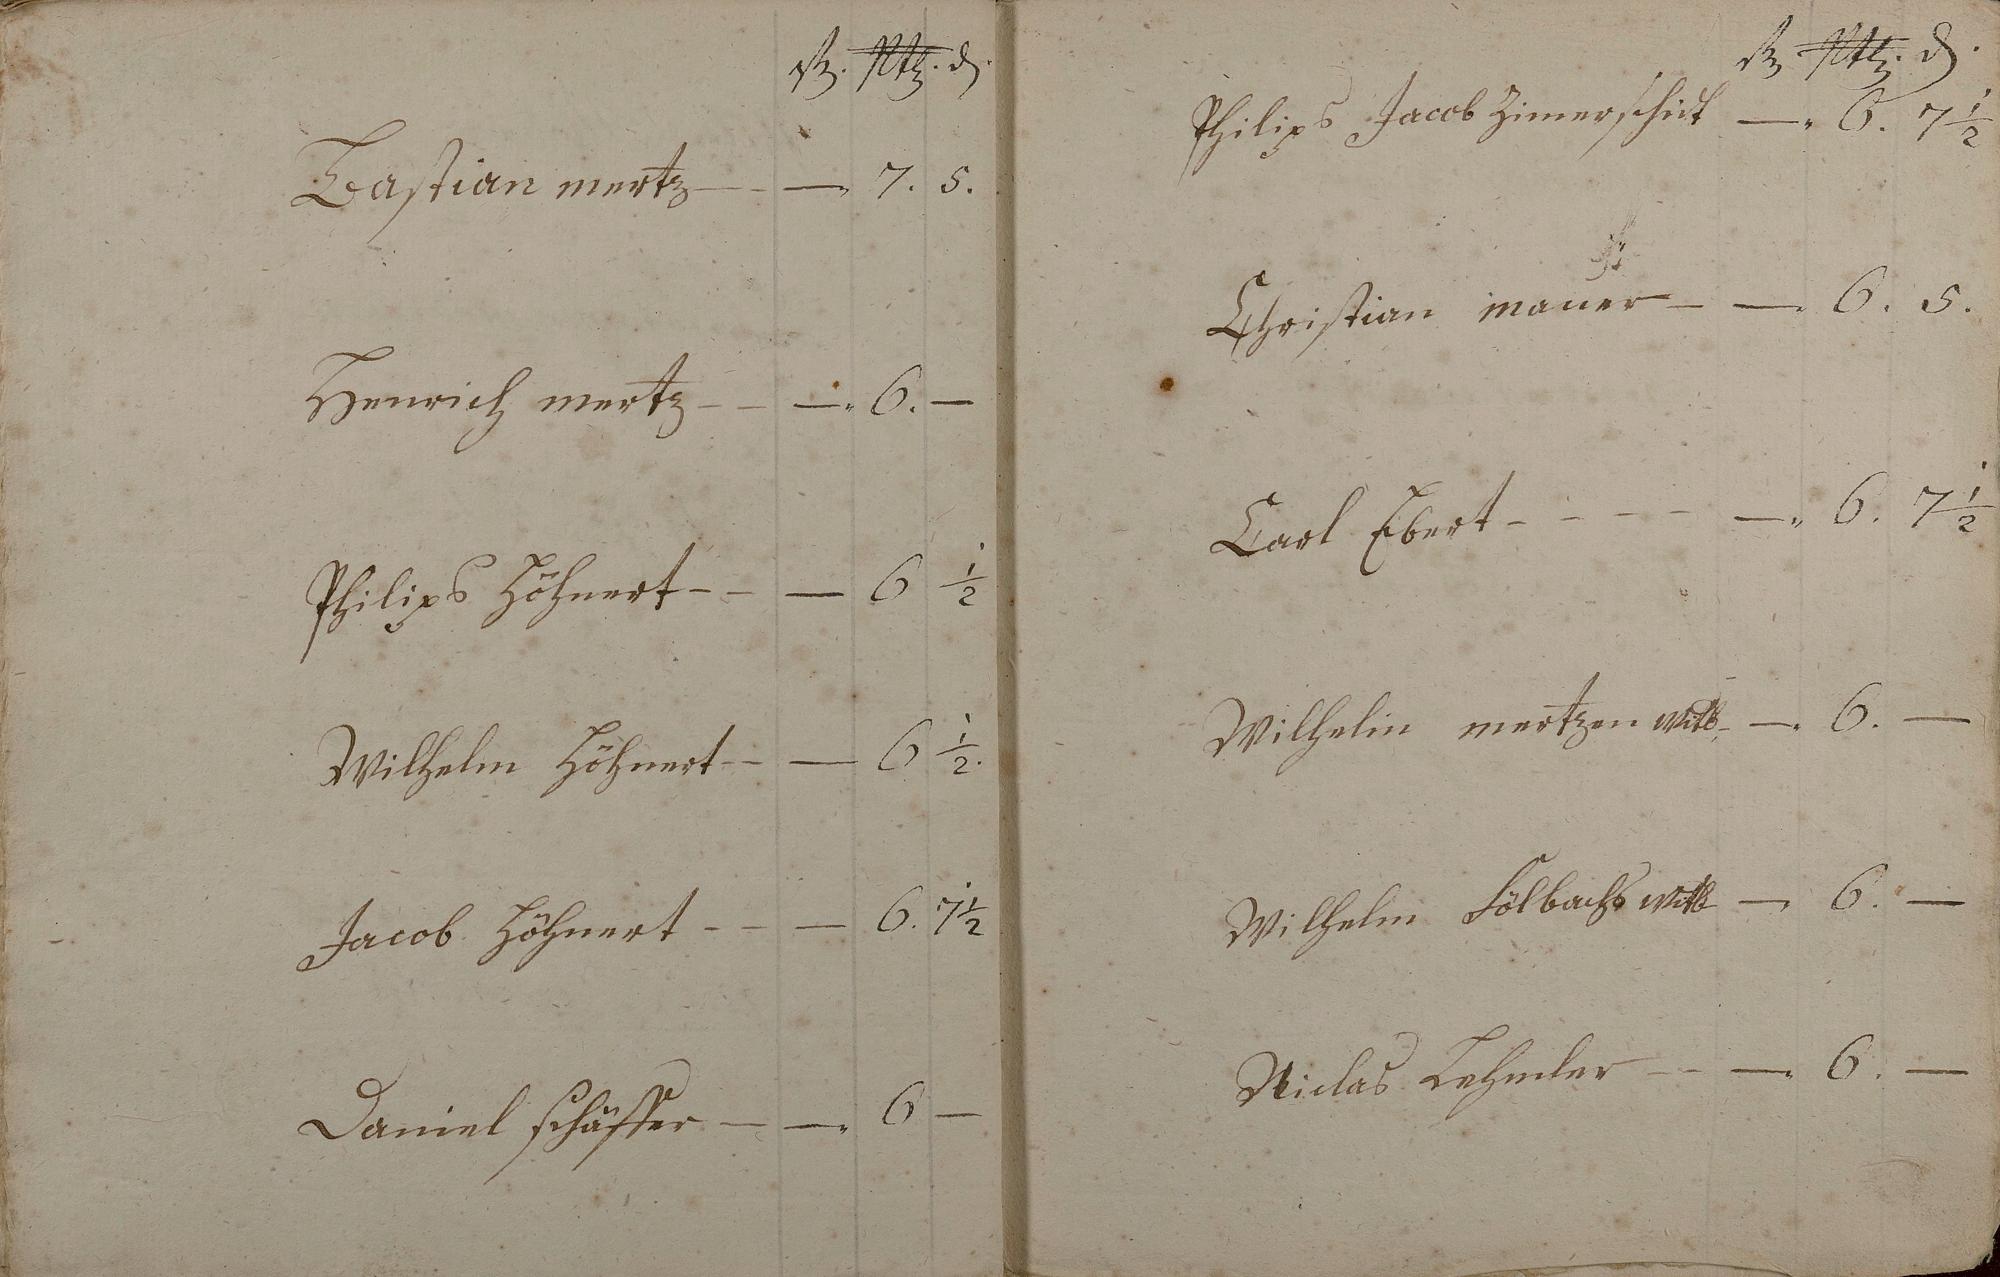 Bastian mertz — — — 7. 5.
Henrich mertz — — — 6. —
Philips Höhnert — — — 6 ½
Wilhelm Höhnert — — — 6 ½.
Jacob Höhnert — — — 6. 7½
Daniel schäffer — — 6 —
Philips Jacob Zimerschidt — 6. 7½
Christian maüer — — 6. 5.
Carl Ebert — — — — — 6. 7½
Wilhelm mertzen witb — — 6. —
Wilhelm Sölbachs witb — 6. —
Niclas — — — 6. —